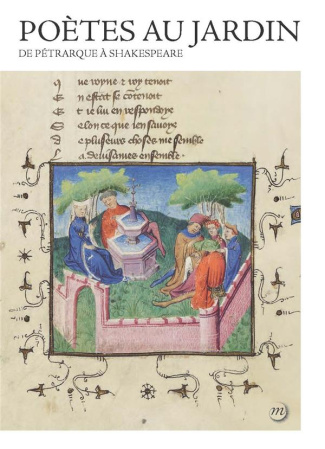 POÈTES AU JARDIN
DE PÉTRARQUE À SHAKESPEARE
Que royne et roy tenoit
En estat se contenoit
Et je lui en respondoye
Selon ce que j'en savoye
De plusieurs choses me semble
La devisames ensemble.
m